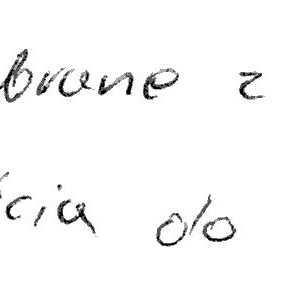 brane z
cia do